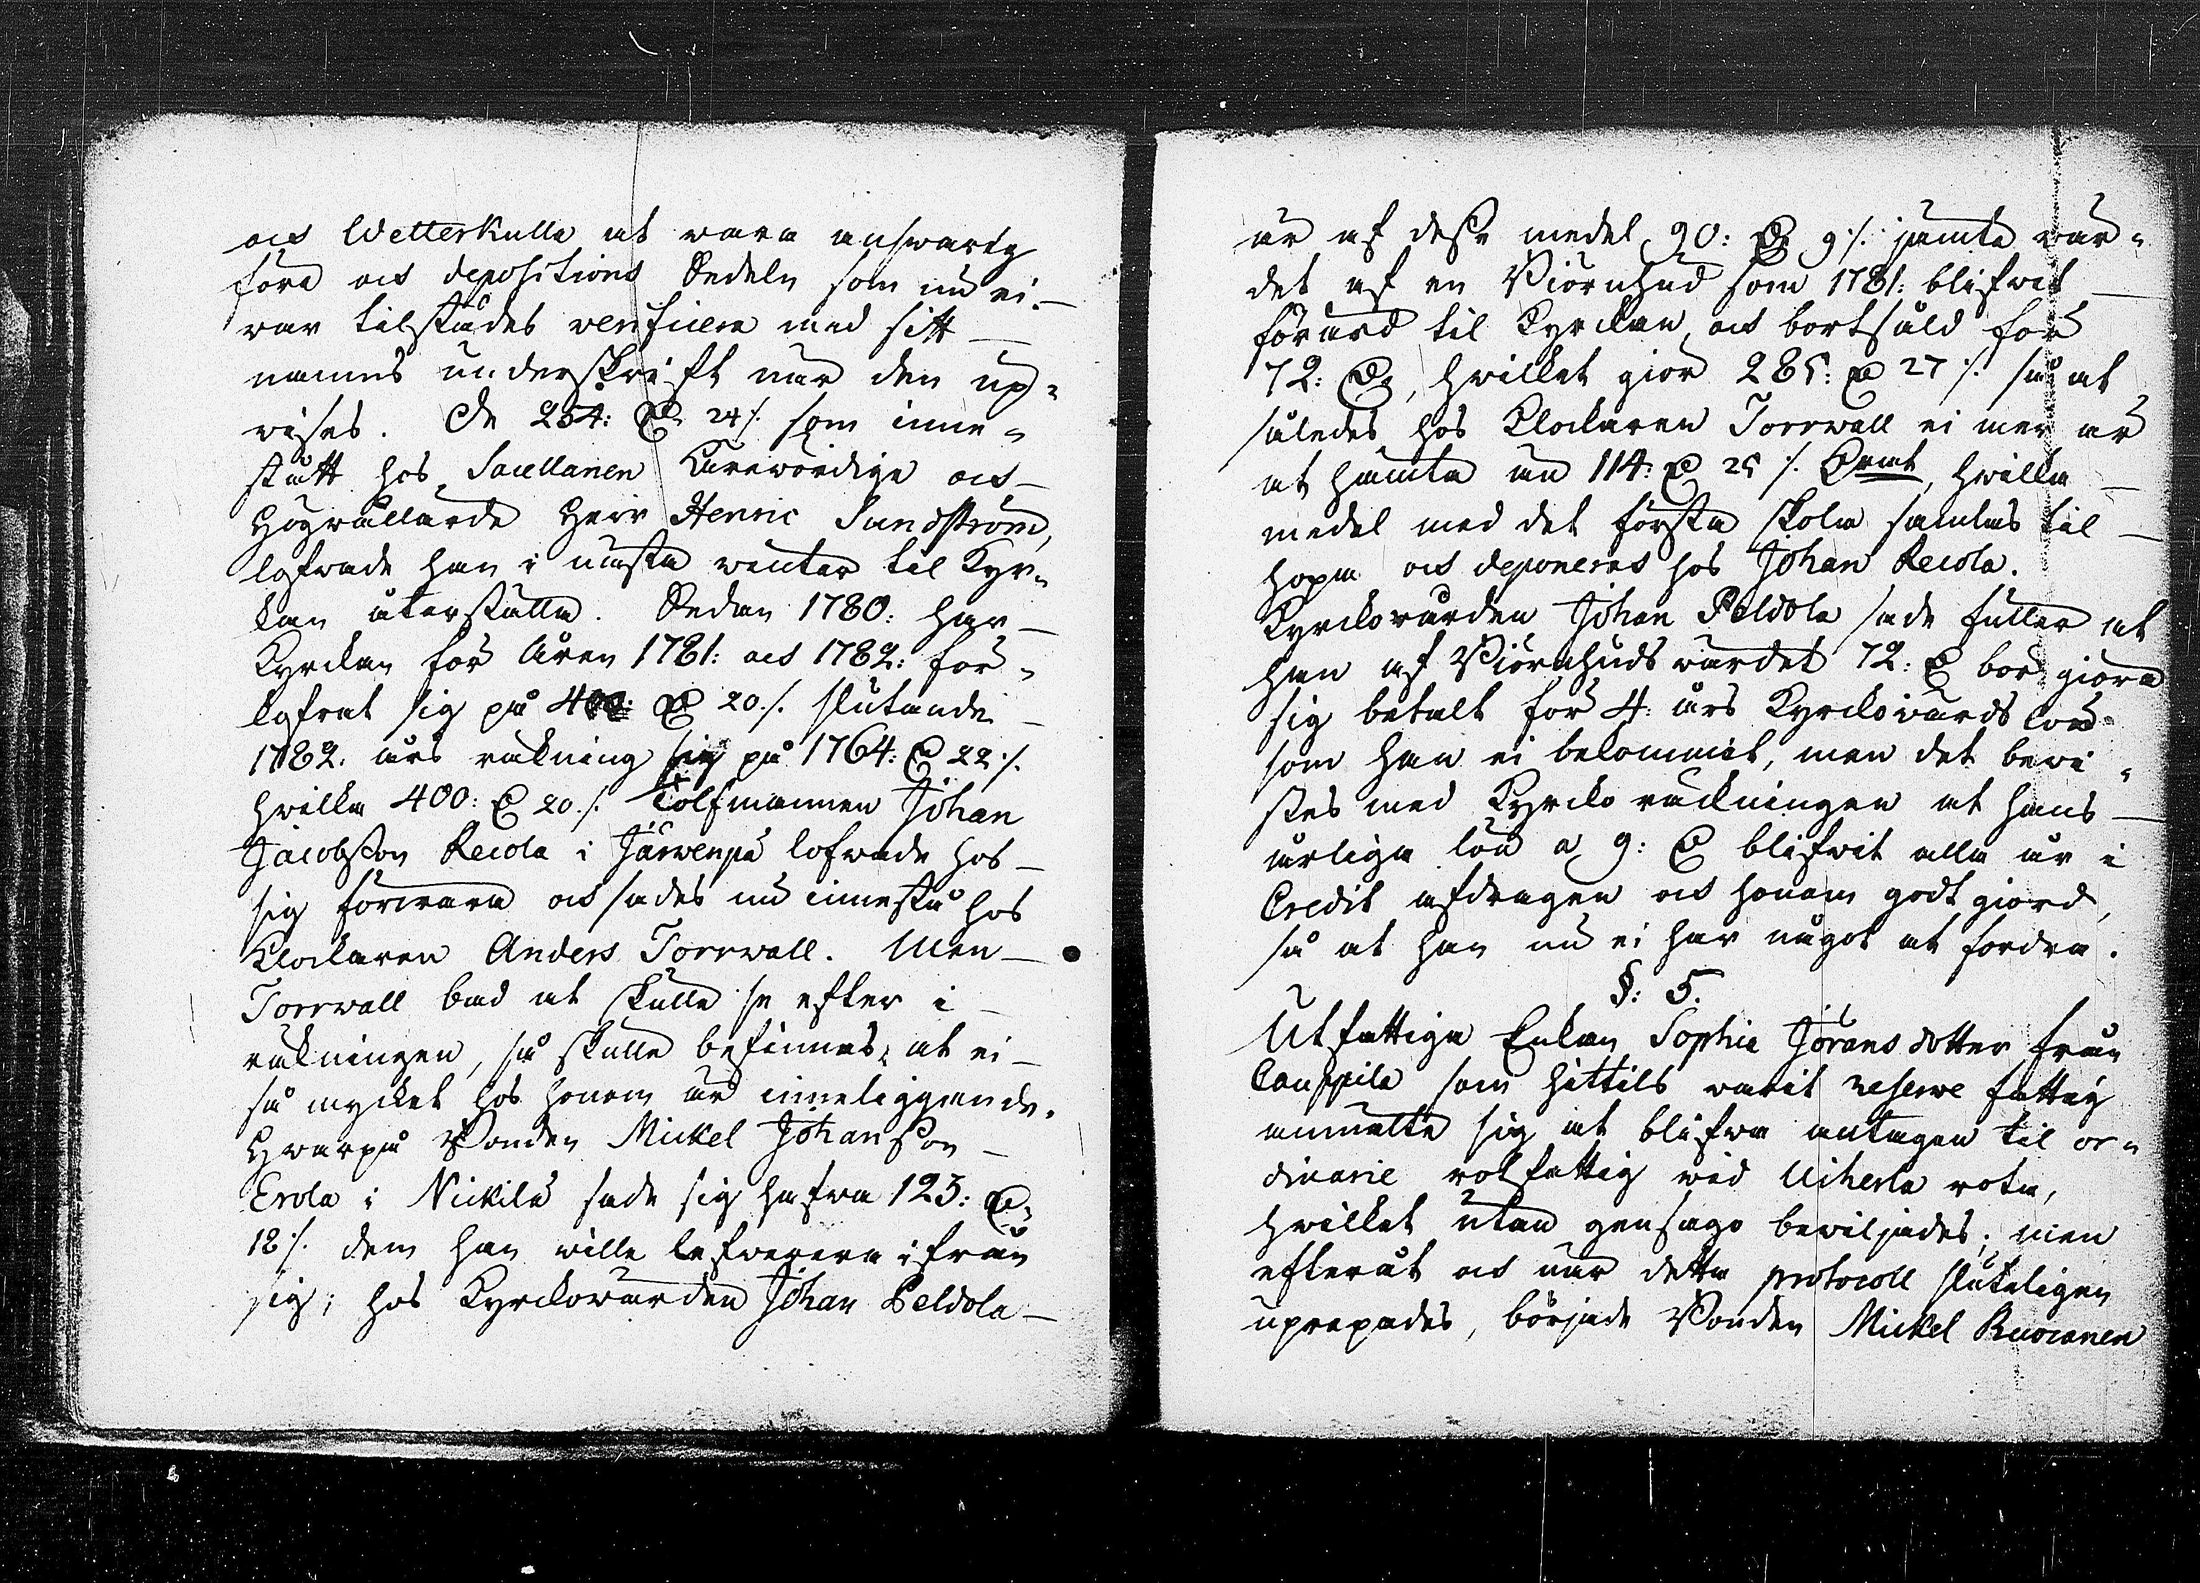 och Wetterkulla at wara answarig
före och depositions Sedeln som nu ei
war tilstädes verificera med sitt
namns underskrift när den up-
wises. De 254: D. 24/. som inne-
stått hos Sacellanen Ährewördige och
Högwällärde Herr Henric Sundström,
lofwade han i nästa winter til Kyr-
kan återställa. Sedan 1780: har
Kyrckan för Åren 1781: och 1782: för-
kofrat sig på 400: D 20./. slutande
1782. års räkning sig på 1764: D 22./.
hwilka 400: D 20./. Tolfmannen Johan
Jacobsson Recola i Järwenpä lofwade hos
sig förwara och sades nu innestå hos
Klockaren Anders Torrwall. Men
Torrwall bad at skulle se efter i
räkningen, så skulle befinnas, at ei
så mycket hos honom är inneliggande.
Hwarpå Bonden Mickel Johansson
Erola i Nickilä sade sig hafwa 123: D.
12/. dem han wille lefwerera ifrån
sig; hos Kyrckowärden Johan Peldola
är af desse medel 90: D 9/. jämte wär-
det af en Biörnhud som 1781: blifwit
förärd til Kyrckan och bortsåld för
72: D, hwilket giör 285: D 27/. så at
således hos Klockaren Torrwall ei mer är
at hämta än 114: D 25/. Kmt, hwilka
medel med det första skola samlas til
hopa och deponeras hos Johan Recola.
Kyrckowärden Johan Peldola sade fuller at
han af Biörnhuds wärdet 72: D bör giöra
sig betalt för 4: års Kyrckowärds lön
som han ei bekommit, men det bewi-
stes med Kyrcko räckningen at hans
årliga lön a 9: D blifwit alla år i
Credit afdragen och honom godt giord,
så at han nu ei har något at fordra.
§: 5.
Utfattiga Enkan Sophia Jörans dotter från
Cauppila som hittils warit reserve fattig
anmälte sig at blifwa antagen til or-
dinarie rotfattig wid Uiherla rota,
hwilket utan gensago bewiljades; men
efteråt och när detta protocoll sluteligen
upropades, började Bonden Mickel Ruocanen